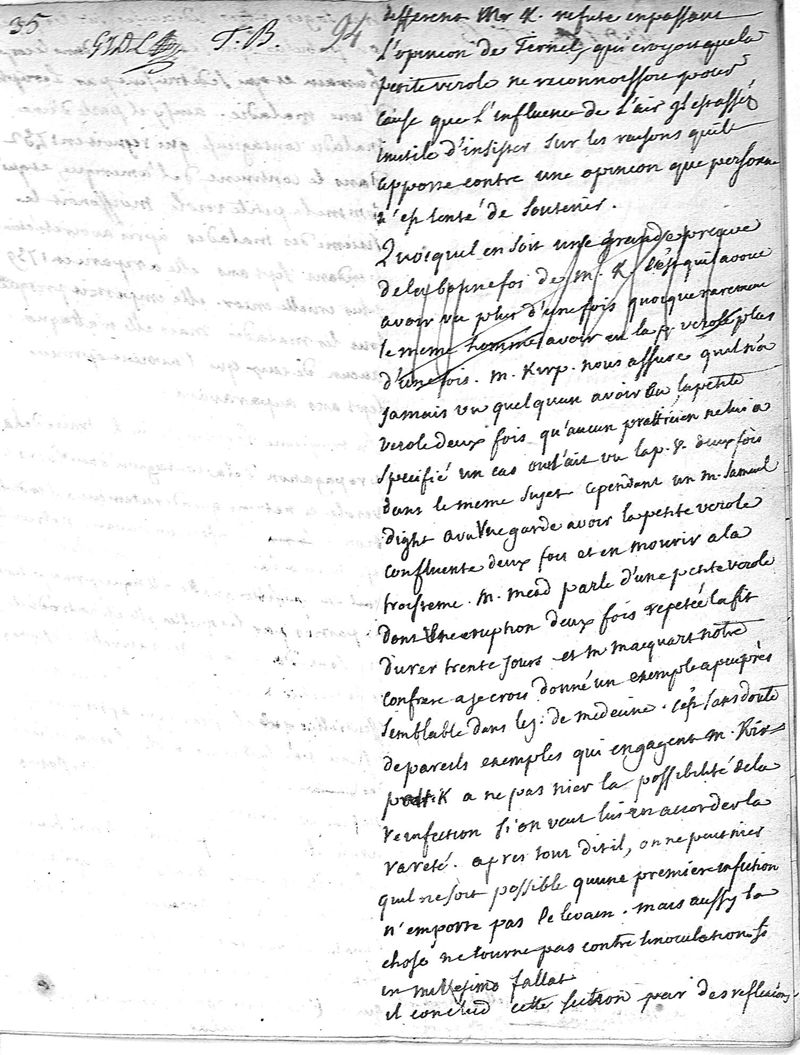 35
T. B. 24
different Mr K. refute enpassant
L'opinion de Fernel, qui croyoit que la
petite verole ne reconnoissoit pour
cause que L'influence de L'air il est assés
inutile d'insister sur les raisons quil
apporte contre une opinion que personne
n'est tenté de soutenir.
Quoiquil en soit une grande preuve
de la bonne foi de M. K. c'est quil avoue
avoir vu plus d'une fois quoique rarement
le meme homme avoir eu la p. verole plus
d'une fois. M. Kirp. nous assure quil n'a
jamais vu quelquun avoir eu la petite
verole deux fois qu'aucun pratticien ne lui a
specifié un cas ou il ait vu la p. v. deux fois
dans le meme sujet cependant un M. Samuel
dight a vu une garde avoir la petite verole
confluente deux fois et en mourir a la
troisieme. M. Mead parle d'une petite verole
dont une eruption deux fois repetée la fit
durer trente jours et M Macquart notre
confrere a je crois donné un exemple a peu près
semblable dans le j. de medecine. C'est sans doute
de pareils exemples qui engagent M. Kir
K a ne pas nier la possibilité de la
reinfection si on veut lui en accorder la
rareté. apres tout dit il, on ne peut nier
quil ne soit possible quune premiere infection
n'emporte pas le levain. mais aussy la
chose ne tourne pas contre linoculation si
in millesimo fallat
il conclud cette section par des reflexions